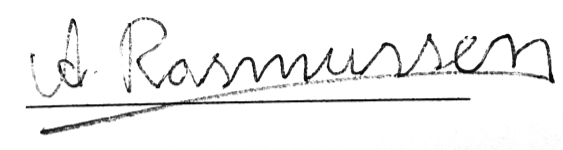 A. Rasmussen